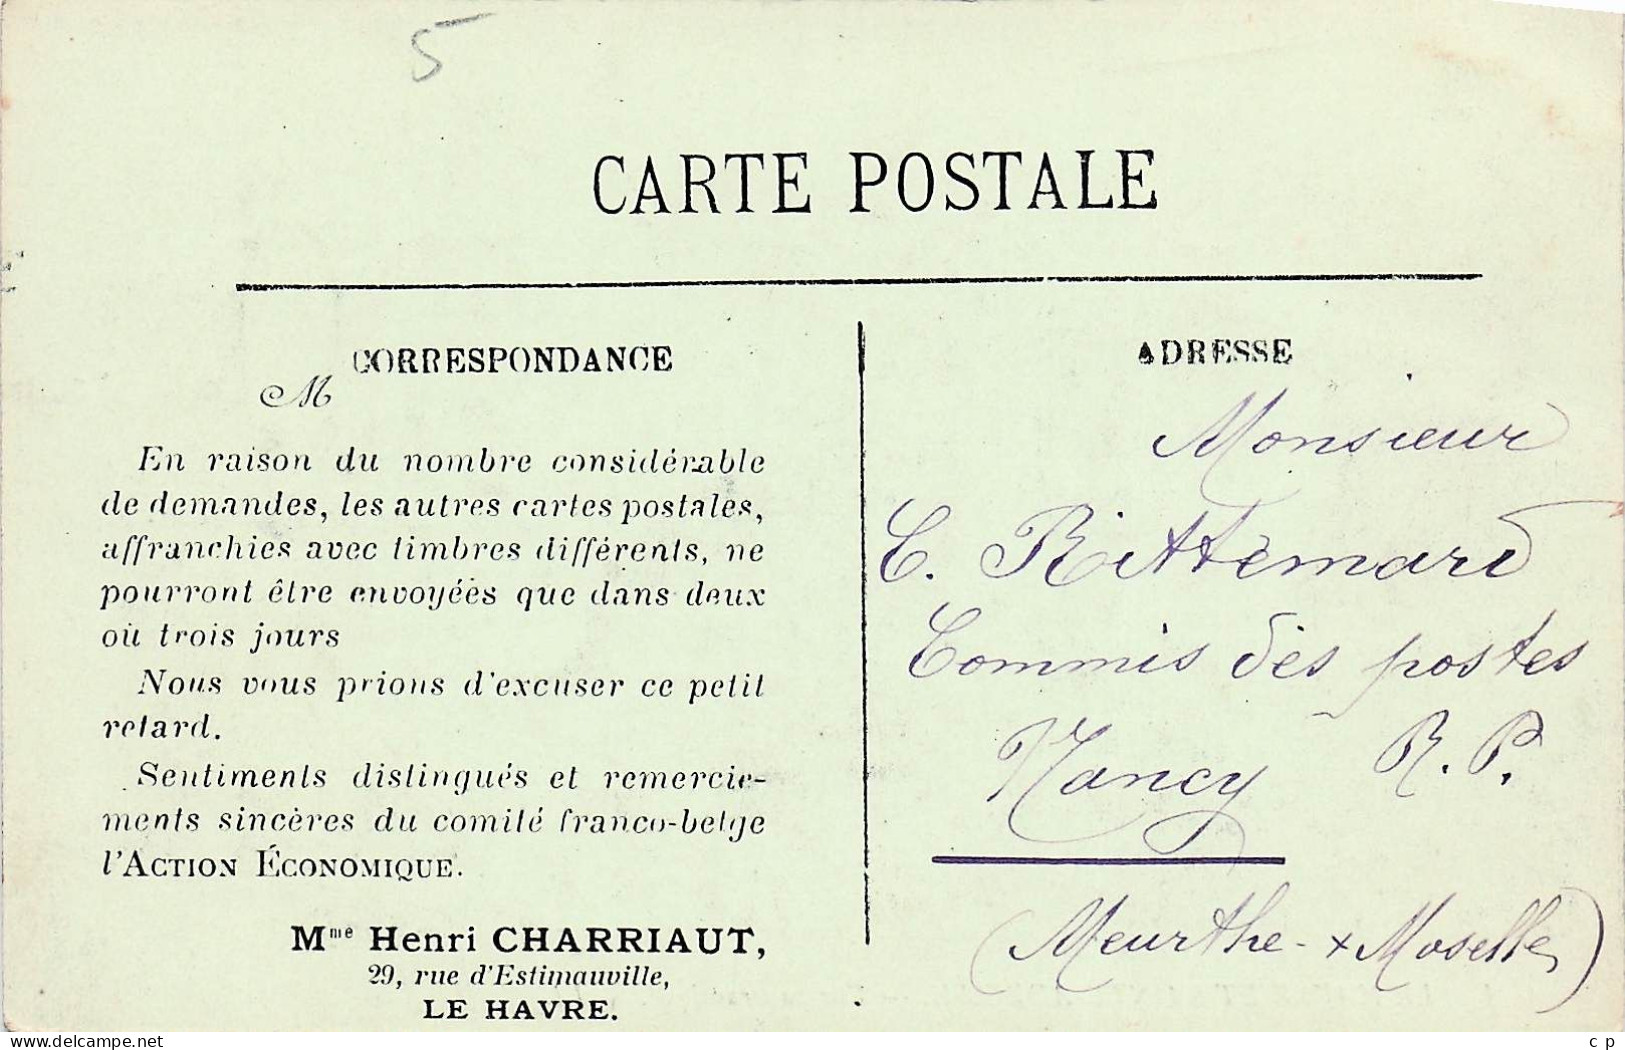 5
CARTE POSTALE
CORRESPONDANCE
M
En raison du nombre considérable
de demandes, les autres cartes postales,
affranchies avec timbres différents, ne
pourront être envoyées que dans deux
où trois jours
Nous vous prions d'excuser ce petit
retard.
Sentiments distingués et remercie-
ments sincères du comité franco-belge
l'ACTION ÉCONOMIQUE.
Mme Henri CHARRIAUT,
29, rue d'Estimauville,
LE HAVRE.
ADRESSE
Monsieur
C. Rittèmard
Commis des postes
Nancy R.P.
(Meurthe-&-Moselle)
www.delcampe.net
c p